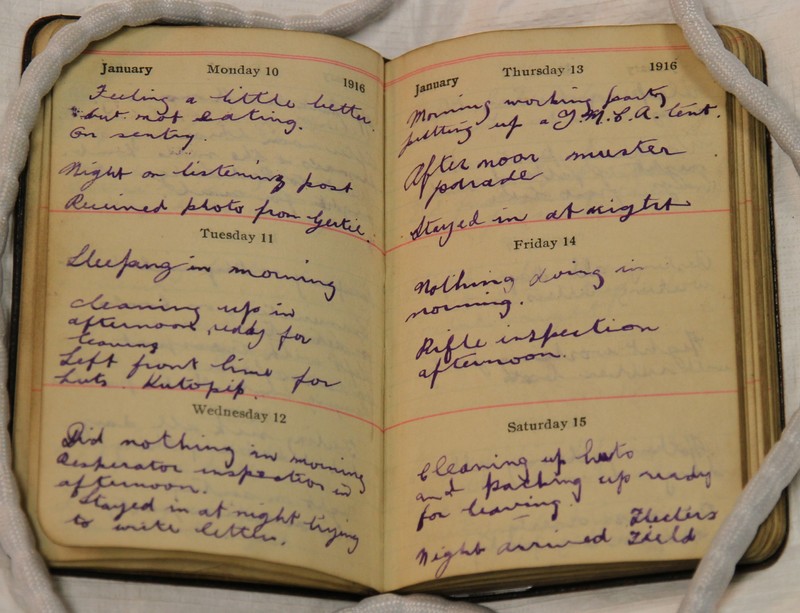 January Monday 10 1916
Feeling a little better
but not eating.
On sentry.
Night on listening post
Received photo from Gertie.
Tuesday 11
Sleeping in morning
cleaning up in
afternoon ready for
leaving
Left front line for
huts. Kutopip.
Wednesday 12
Did nothing in morning
Resperator inspection in
afternoon.
Stayed in at night trying
to write letter.
January Thursday 13 1916
Morning working party
putting up a Y.M.C.A. tent.
After noon muster
parade
Stayed in at night
Friday 14
Nothing doing in
morning.
Rifle inspection
afternoon.
Saturday 15
Cleaning up huts
and packing up ready
for leaving.
Night arrived Fleeters
Field